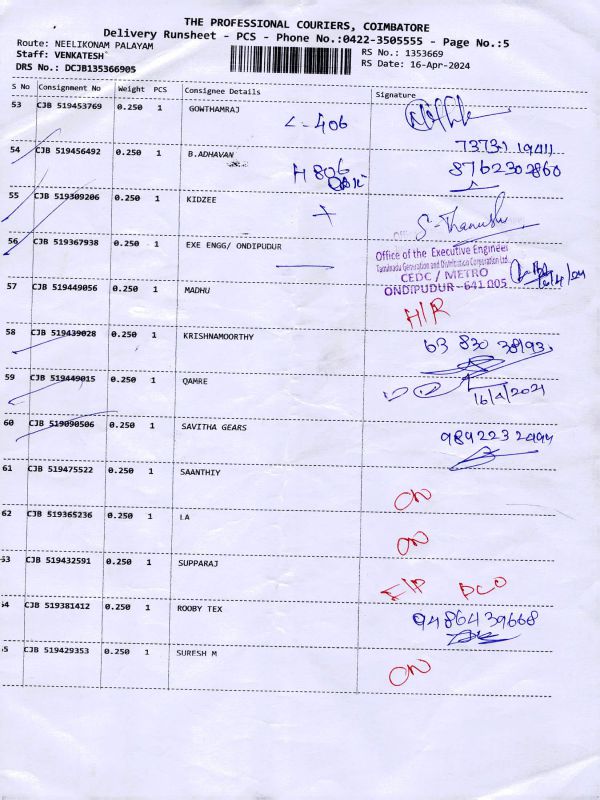 THE PROFESSIONAL COURIERS, COIMBATORE
Delivery Runsheet - PCS - Phone No.:0422-3505555 - Page No.:5
Route: NEELIKONAM PALAYAM
RS No.: 1353669
Staff: VENKATESH
RS Date: 16-Apr-2024
DRS No.: DCJB135366905
S No Consignment No Weight PCS Consignee Details Signature
53 CJB 519453769 0.250 1 GOWTHAMRAJ
L-406
73731 19411
54 CJB 519456492 0.250 1 B.ADHAVAN
H 806
8762302860
55 CJB 519309206 0.250 1 KIDZEE
S-Thanush
56 CJB 519367938 0.250 1 EXE ENGG/ ONDIPUDUR
Office of the Executive Engineer
Tamilnadu Generation and Distribution Corporation Ltd.
CEDC / METRO
ONDIPUDUR-641 005
16/4/24
57 CJB 519449056 0.250 1 MADHU
H/R
58 CJB 519439028 0.250 1 KRISHNAMOORTHY
63 830 38193
59 CJB 519449015 0.250 1 QAMRE
16/4/2021
60 CJB 519090506 0.250 1 SAVITHA GEARS
9892232494
61 CJB 519475522 0.250 1 SAANTHIY
ON
62 CJB 519365236 0.250 1 I.A
ON
53 CJB 519432591 0.250 1 SUPPARAJ
I/P DCO
54 CJB 519381412 0.250 1 ROOBY TEX
9486439668
55 CJB 519429353 0.250 1 SURESH M
ON